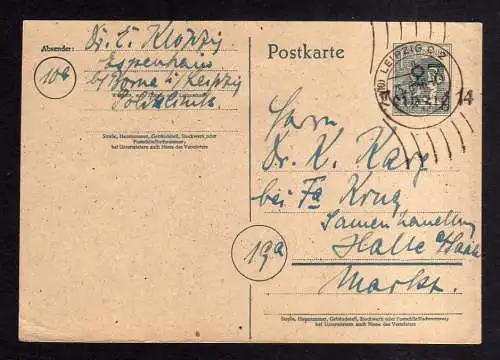 Absender: Dr. E. Klöppig
Espenhain
b/ Borna ü/ Leipzig
Poliklinik
10b
Straße, Hausnummer, Gebäudeteil, Stockwerk oder
Postschließfachnummer;
bei Untermietern auch Name des Vermieters
Postkarte
LEIPZIG
14
Herrn
Dr. K. Karg
bei Fa Krug
Samenhandlung
Halle a/Saale
Markt.
19a
Straße, Hausnummer, Gebäudeteil, Stockwerk oder Postschließfachnummer;
bei Untermietern auch Name des Vermieters